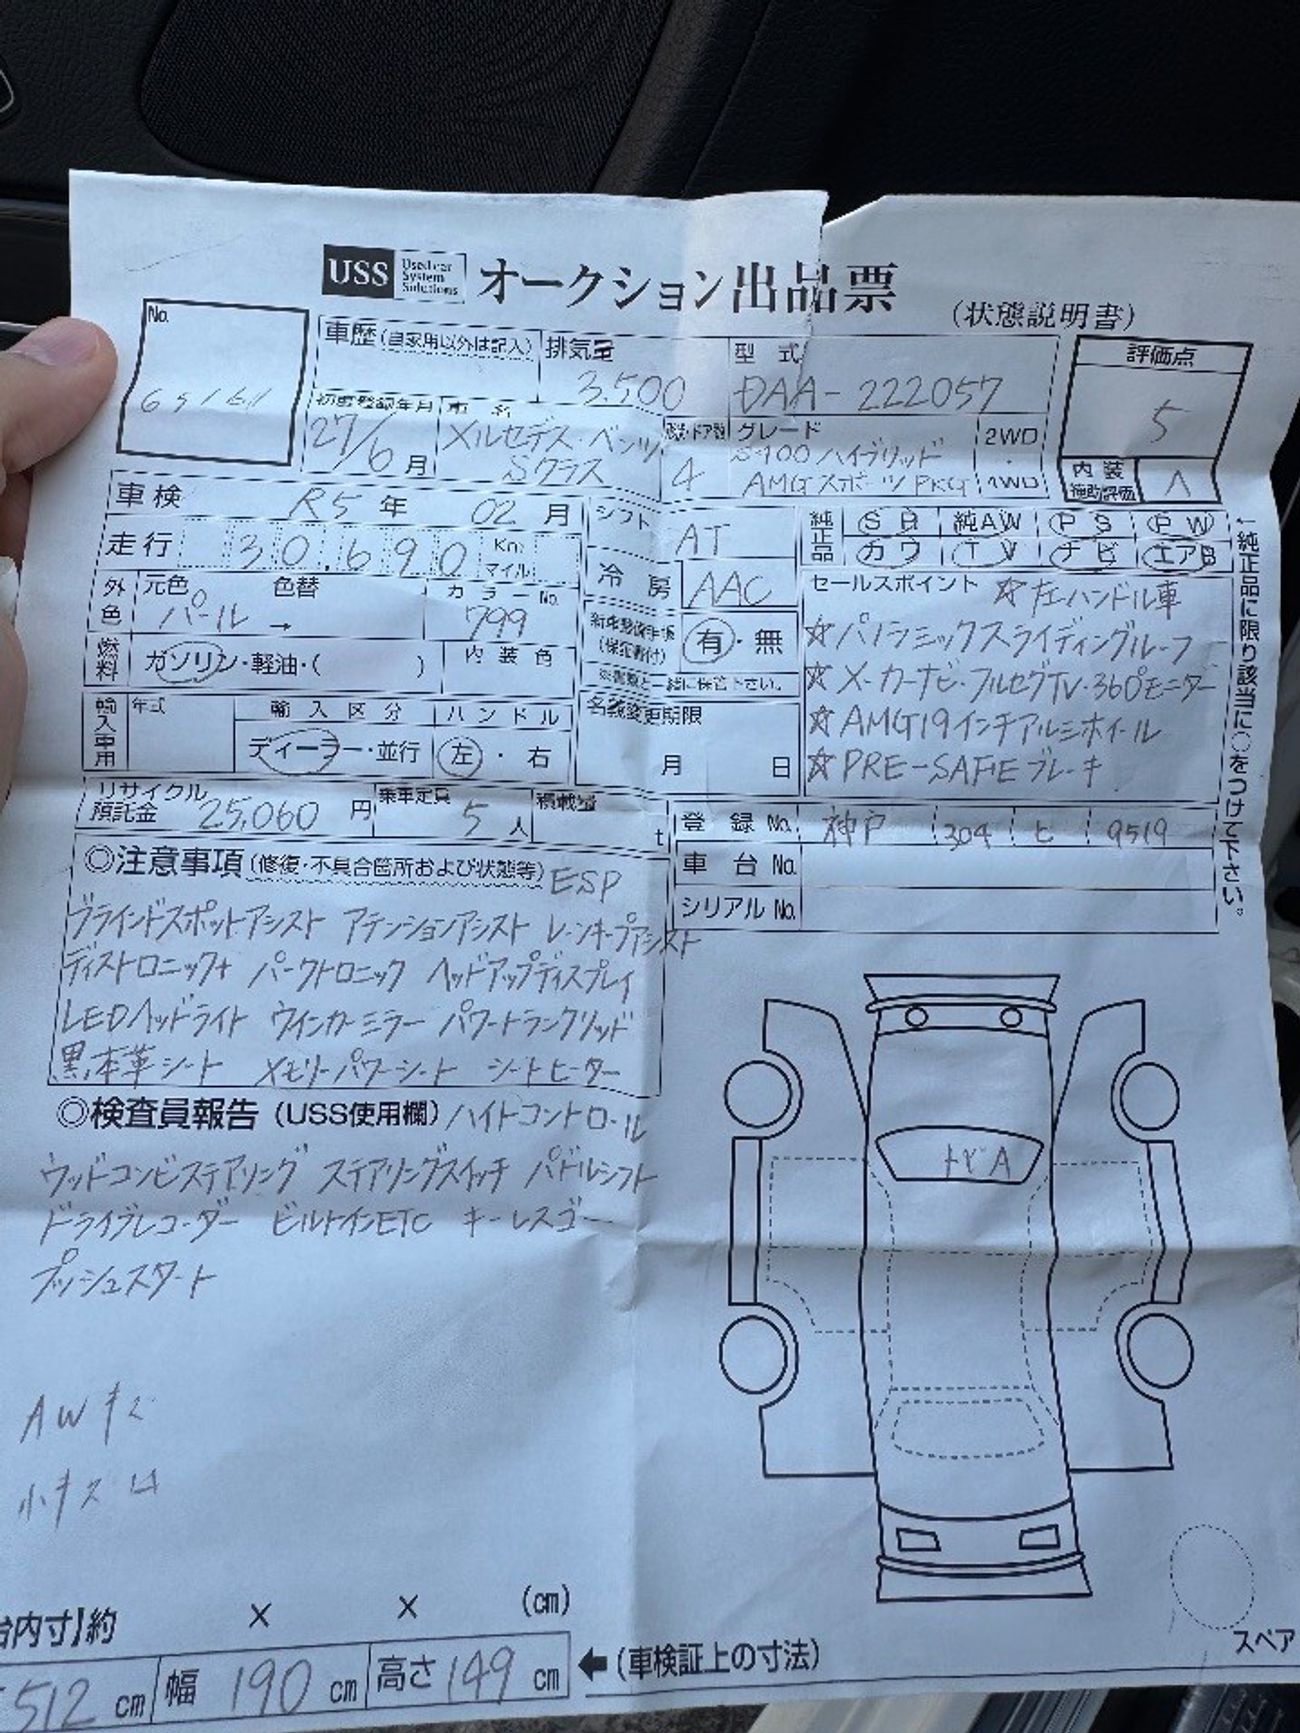 USS Used car System Solutions オークション出品票 (状態説明書)
No.
車歴 (自家用以外は記入) 排気量 3,500
型式 DAA-222057
評価点 5
内装補助評価 A
初度登録年月 27/6月
車名 メルセデス・ベンツ Sクラス
形状・ドア数 4
グレード S400ハイブリッド AMGスポーツPKG
2WD・4WD
車検 R5年 02月
シフト AT
純正品 SR 純AW PS PW
カワ TV ナビ エアB
走行 30,690 Km マイル
冷房 AAC
外色 元色 パール → 色替 カラーNo. 799
新車整備手帳 (保証書付) 有・無
※書類と一緒に保管下さい。
セールスポイント ☆左ハンドル車
☆パノラミックスライディングルーフ
☆メーカーナビ・フルセグTV・360°モニター
☆AMG19インチアルミホイール
☆PRE-SAFEブレーキ
↓純正品に限り該当に○をつけて下さい。
燃料 ガソリン・軽油・( ) 内装色
名義変更期限 月 日
輸入車用 年式 輸入区分 ハンドル
ディーラー・並行 左・右
リサイクル預託金 25,060円 乗車定員 5人 積載量 t
登録No. 神戸 304 ヒ 9519
車台No.
シリアルNo.
◎注意事項 (修復・不具合箇所および状態等) ESP
ブラインドスポットアシスト アテンションアシスト レーンキープアシスト
ディストロニック+ パークトロニック ヘッドアップディスプレイ
LEDヘッドライト ウインカーミラー パワートランクリッド
黒本革シート メモリーパワーシート シートヒーター
◎検査員報告 (USS使用欄) ハイトコントロール
ウッドコンビステアリング ステアリングスイッチ パドルシフト
ドライブレコーダー ビルトインETC キーレスゴー
プッシュスタート
トビA
AWキズ
小キズ
台内寸】約 × × (cm)
512cm 幅 190cm 高さ 149cm ←(車検証上の寸法)
スペア